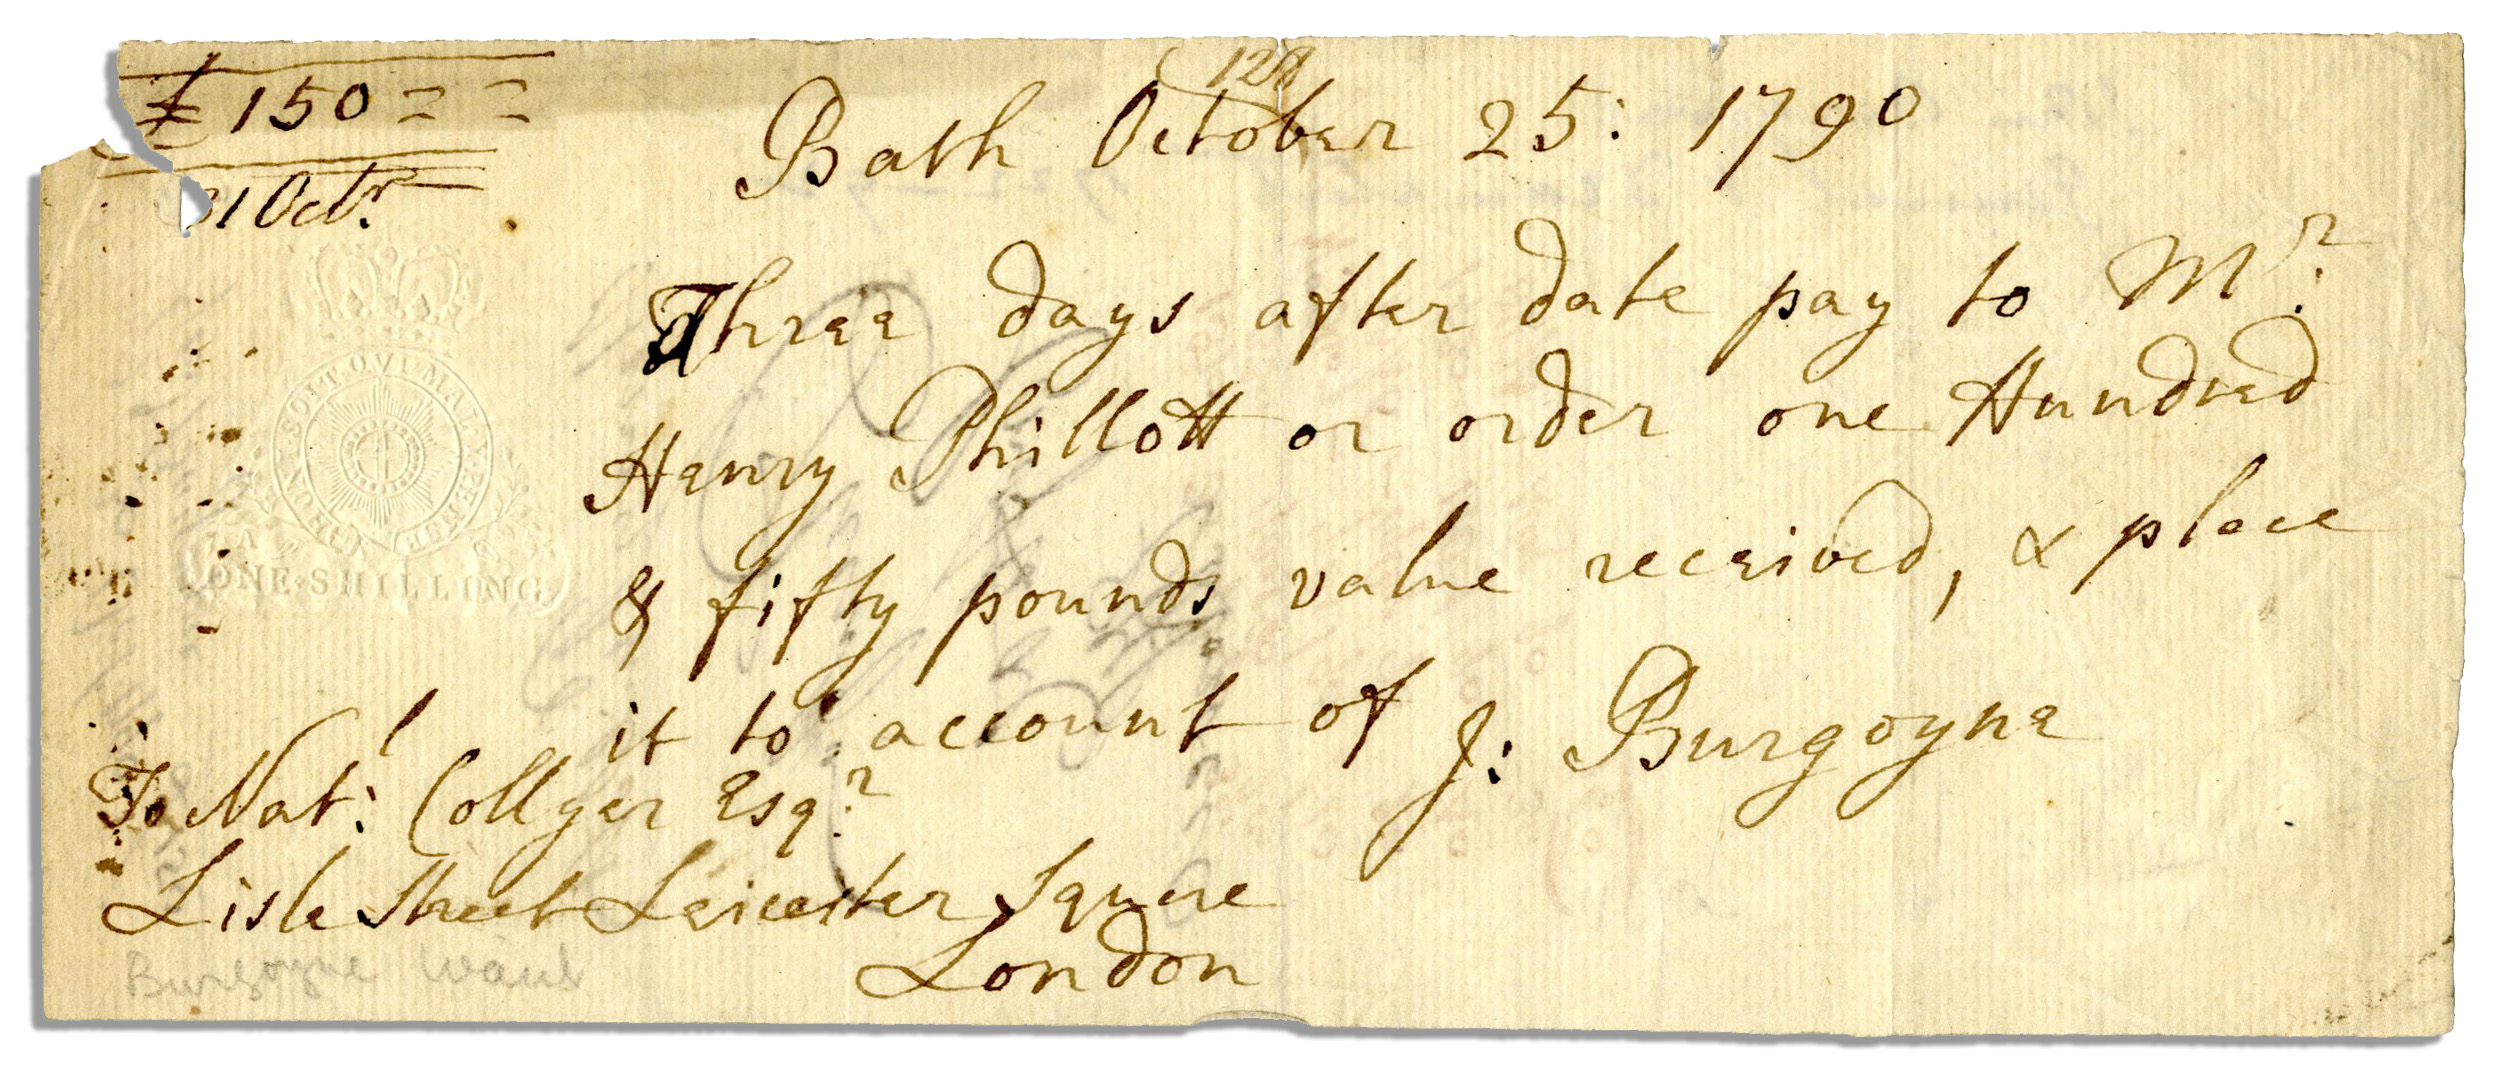 £ 150 = =
31 Octr.
128
Bath October 25: 1790
Three days after date pay to Mr:
Henry Phillott or order one Hundred
& fifty pounds value received, & place
it to account of
J: Burgoyne
To Natl: Collyer Esqr:
Lisle Street Leicester Square
London
HONI·SOIT·QUI·MAL·Y·PENSE
ONE·SHILLING
Burgoyne